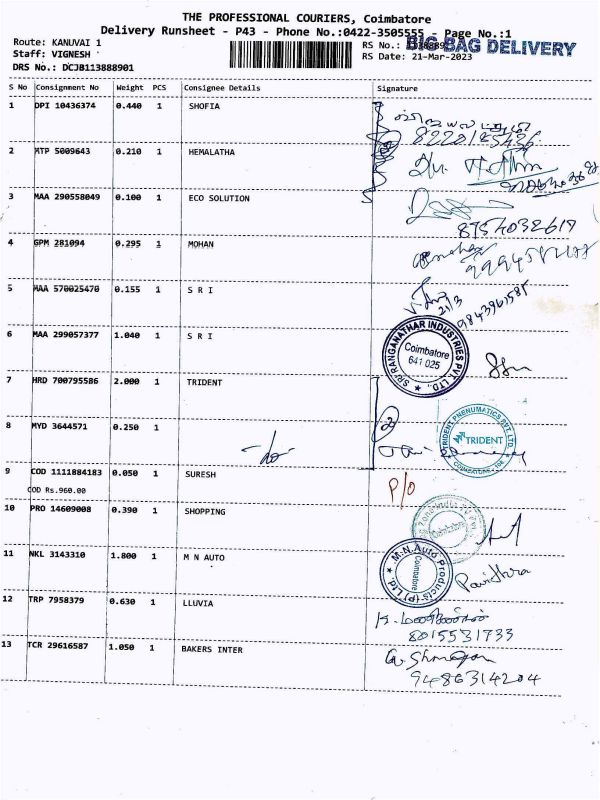 THE PROFESSIONAL COURIERS, Coimbatore
Delivery Runsheet - P43 - Phone No.:0422-3505555 - Page No.:1
Route: KANUVAI 1
RS No.:
BIG BAG DELIVERY
Staff: VIGNESH
RS Date: 21-Mar-2023
DRS No.: DCJB113888901
S No Consignment No Weight PCS Consignee Details Signature
1 DPI 10436374 0.440 1 SHOFIA
8220125426
2 MTP 5009643 0.210 1 HEMALATHA
3 MAA 290558049 0.100 1 ECO SOLUTION
8754032617
4 GPM 281094 0.295 1 MOHAN
5 MAA 570025470 0.155 1 S R I
21/3
9843961585
6 MAA 299057377 1.040 1 S R I
SRI RANGANATHAR INDUSTRIES PVT. LTD.,
Coimbatore
641 025
7 HRD 700795586 2.000 1 TRIDENT
8 MYD 3644571 0.250 1
2
TRIDENT PNEUMATICS PVT. LTD.
TRIDENT
9 COD 1111884183 0.050 1 SURESH
COD Rs.960.00
P/O
10 PRO 14609008 0.390 1 SHOPPING
Coimbatore
11 NKL 3143310 1.800 1 M N AUTO
M.N.Auto Products (P) Ltd
Coimbatore
Pavithra
12 TRP 7958379 0.630 1 LLUVIA
8015531733
13 TCR 29616587 1.050 1 BAKERS INTER
9486314204